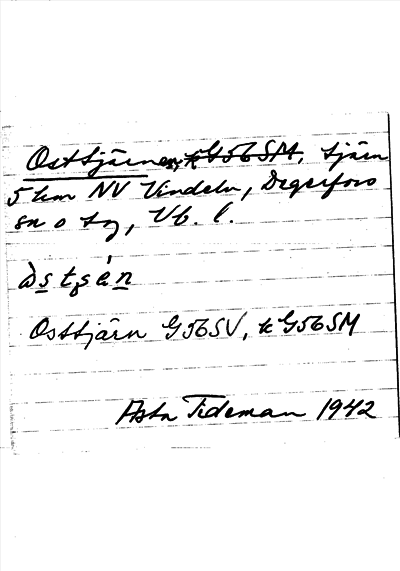 Osttjärnen, k G56SM, tjärn
5 km NV Vindeln, Degerfors
sn o tg, Vb. l.
òstşén
Osttjärn G56SV, k G56SM
Asta Tideman 1942